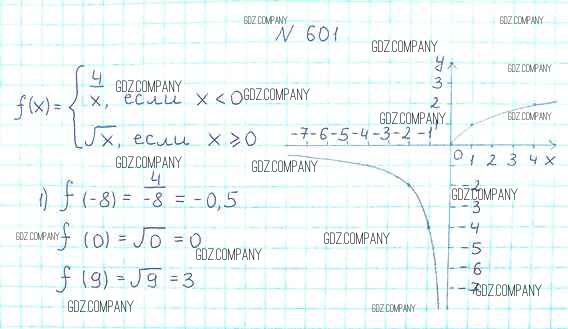 GDZ.COMPANY
N 601
GDZ.COMPANY
y
GDZ.COMPANY
3
4
f(x) = { x, если x < 0
GDZ.COMPANY
GDZ.COMPANY
2
GDZ.COMPANY
GDZ.COMPANY
√x, если x ⩾ 0
-7 -6 -5 -4 -3 -2 -1
GDZ.COMPANY
GDZ.COMPANY
0 1 2 3 4 x
1) f (-8) = 4/-8 = -0,5
-2
GDZ.COMPANY
-3
f (0) = √0 = 0
GDZ.COMPANY
GDZ.COMPANY
GDZ.COMPANY
-4
-5
f (9) = √9 = 3
-6
-7
GDZ.COMPANY
GDZ.COMPANY
GDZ.COMPANY